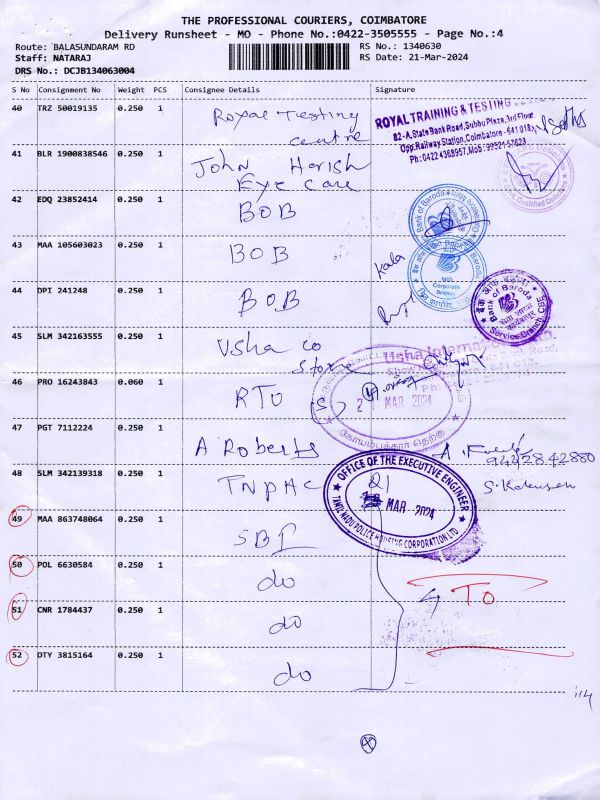 THE PROFESSIONAL COURIERS, COIMBATORE
Delivery Runsheet - MO - Phone No.:0422-3505555 - Page No.:4
Route: BALASUNDARAM RD
RS No.: 1340630
Staff: NATARAJ
RS Date: 21-Mar-2024
DRS No.: DCJB134063004
S No Consignment No Weight PCS Consignee Details Signature
40 TRZ 50019135 0.250 1 Royal Testing
centre
ROYAL TRAINING & TESTING
82-A, State Bank Road, Subbu Plaza, 3rd Floor,
Opp. Railway Station, Coimbatore - 641 018
Ph: 0422 4368957, Mob: 99524 52623
41 BLR 1900838546 0.250 1 John Harish
Eye Care
42 EDQ 23852414 0.250 1 BOB
Bank of Baroda
43 MAA 105603023 0.250 1 BOB
Kala
Mid Corporate Branch
44 DPI 241248 0.250 1 BOB
बैंक ऑफ़ बड़ौदा
Bank of Baroda
Service Branch, CBE
45 SLM 342163555 0.250 1 Usha co
store
Usha International
46 PRO 16243843 0.060 1 RTO
2 MAR 2024
கோயம்புத்தூர் தெற்கு
47 PGT 7112224 0.250 1 A Roberts
9442842880
48 SLM 342139318 0.250 1 TNPHC
OFFICE OF THE EXECUTIVE ENGINEER
21 MAR 2024
TAMIL NADU POLICE HOUSING CORPORATION LTD
49 MAA 863748064 0.250 1 SBI
50 POL 6630584 0.250 1 do
51 CNR 1784437 0.250 1 do
4 TO
52 DTY 3815164 0.250 1 do